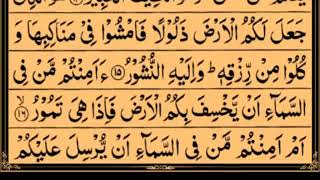 جَعَلَ لَكُمُ الْاَرْضَ ذَلُوْلًا فَامْشُوْا فِیْ مَنَاكِبِهَا وَ
كُلُوْا مِنْ رِّزْقِهٖ ؕ وَاِلَیْهِ النُّشُوْرُ ﴿۱۵﴾ ءَاَمِنْتُمْ مَّنْ فِی
السَّمَآءِ اَنْ یَّخْسِفَ بِكُمُ الْاَرْضَ فَاِذَا هِیَ تَمُوْرُ ﴿۱۶﴾ ۙ
اَمْ اَمِنْتُمْ مَّنْ فِی السَّمَآءِ اَنْ یُّرْسِلَ عَلَیْكُمْ